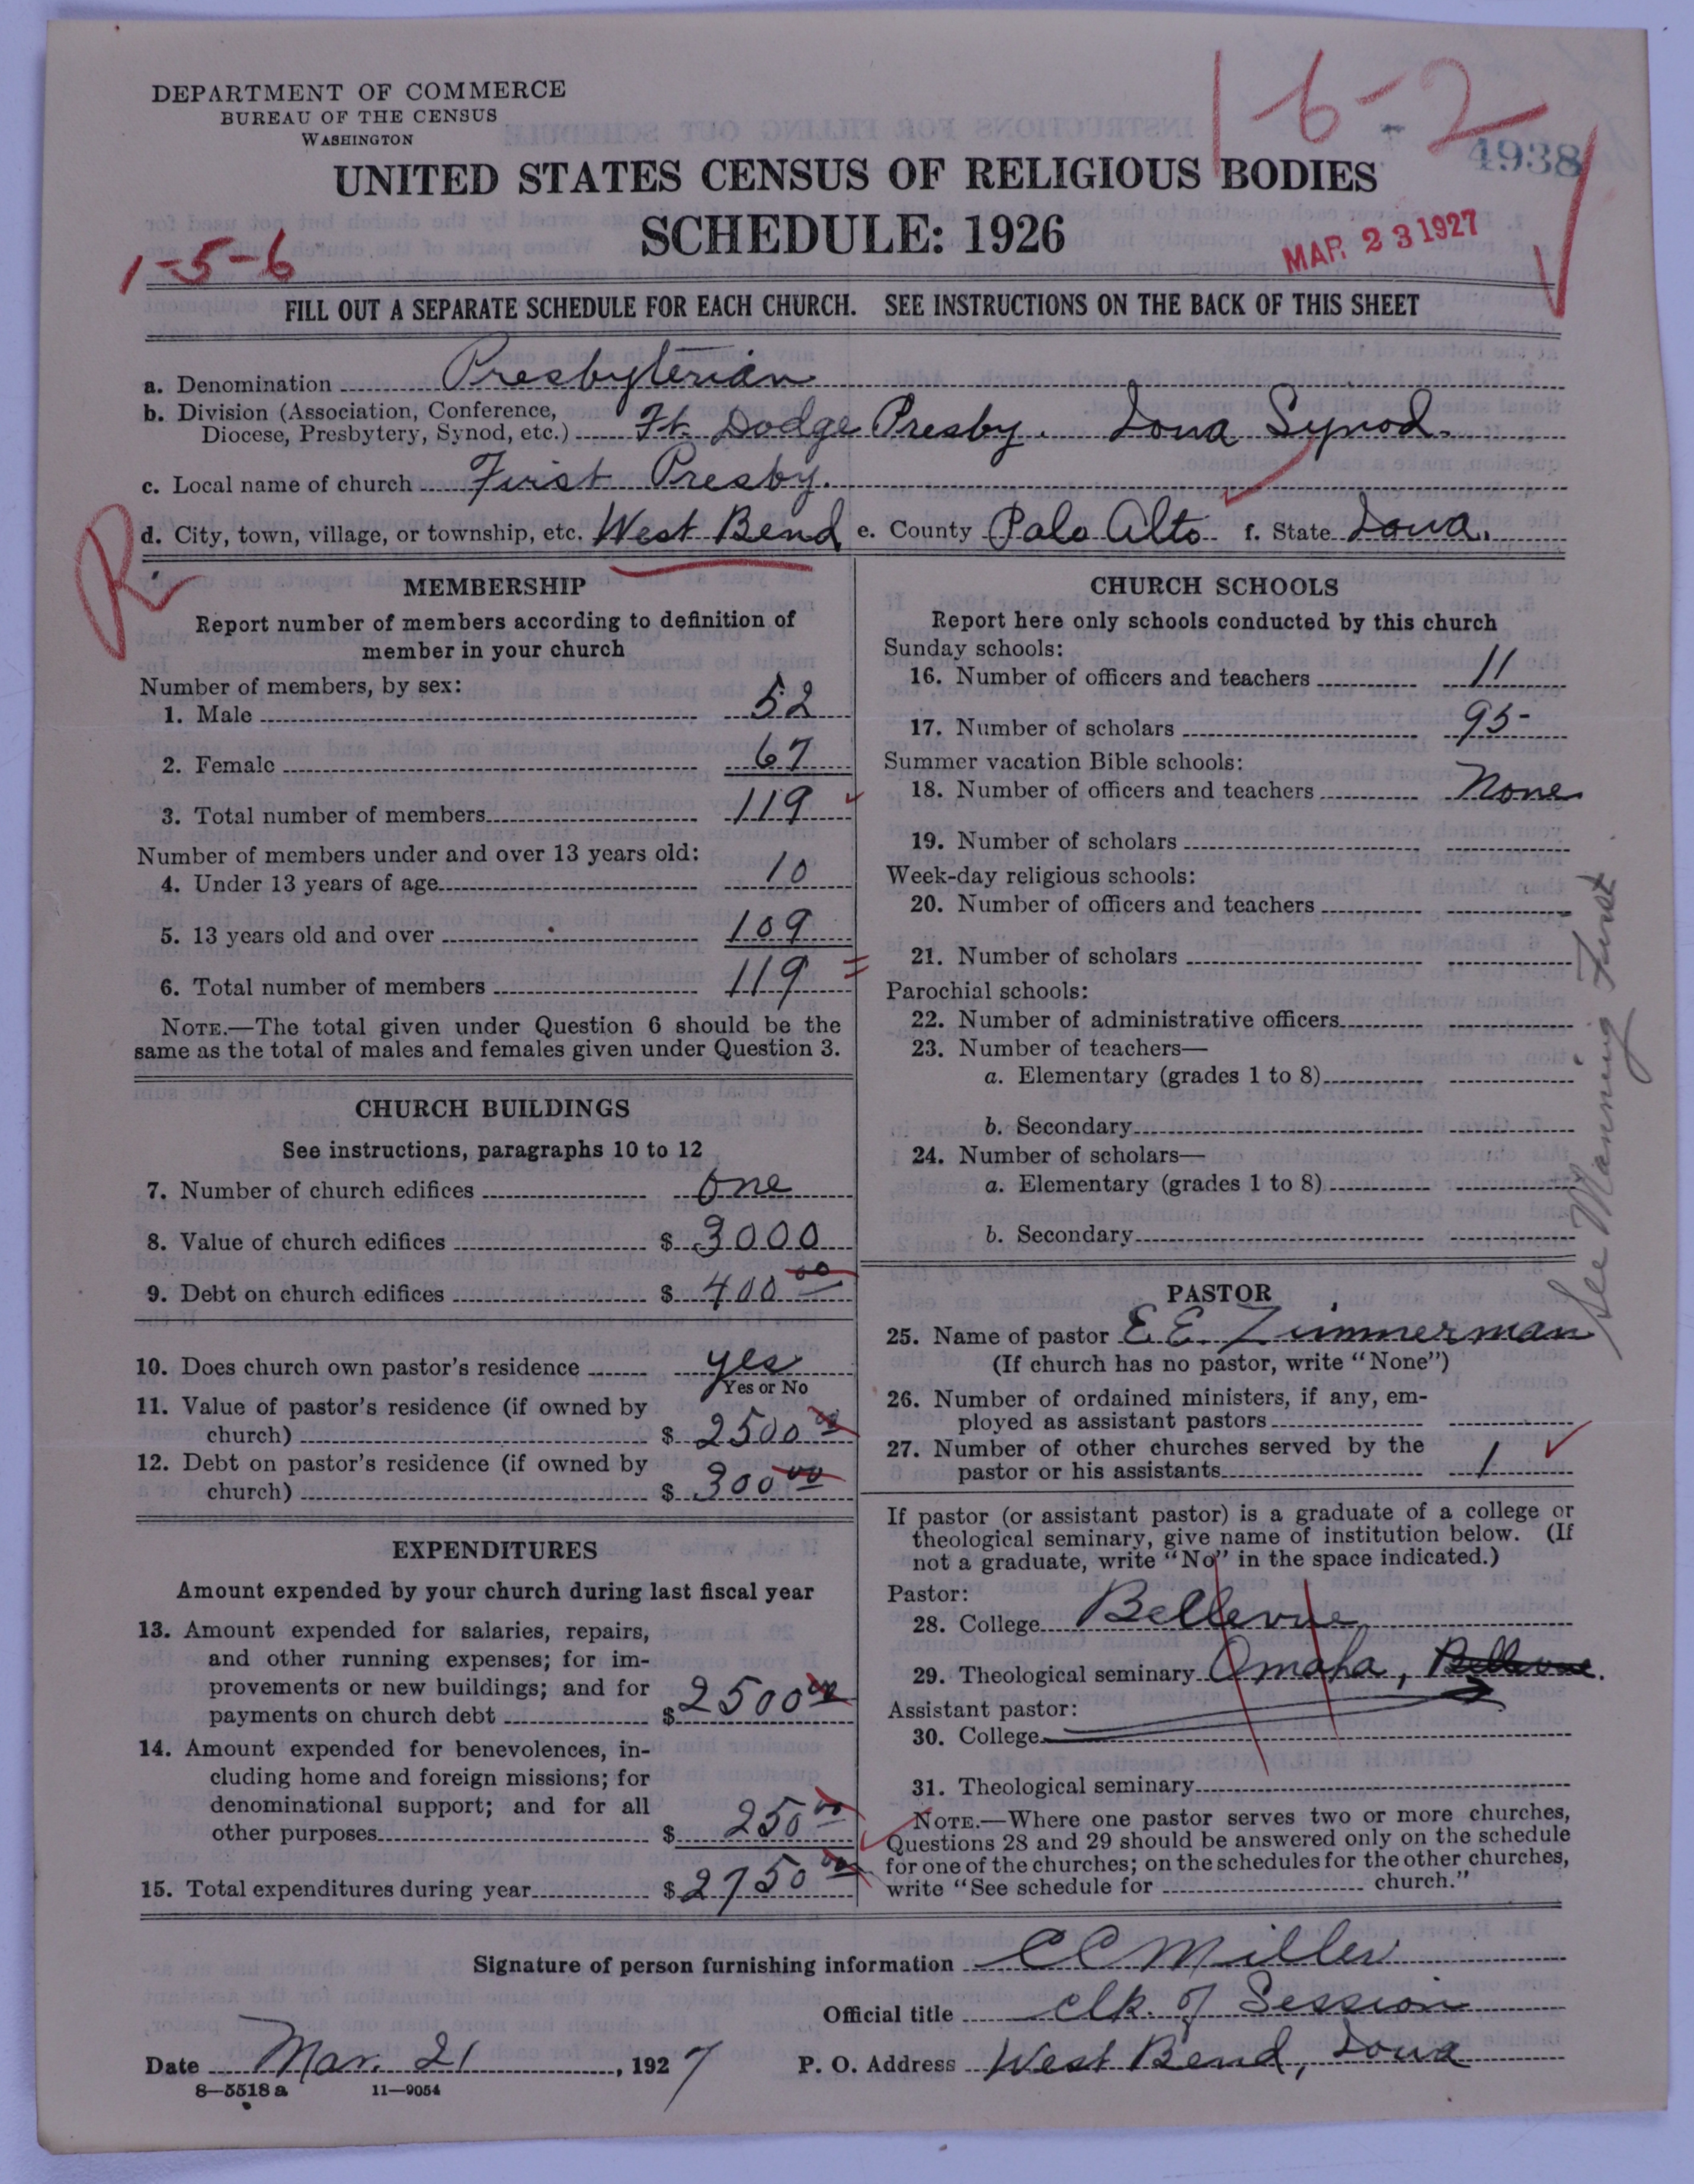 DEPARTMENT OF COMMERCE
BUREAU OF THE CENSUS
WASHINGTON
1-6-2
4938
UNITED STATES CENSUS OF RELIGIOUS BODIES
SCHEDULE: 1926
MAR 23 1927
1-5-6
FILL OUT A SEPARATE SCHEDULE FOR EACH CHURCH. SEE INSTRUCTIONS ON THE BACK OF THIS SHEET
a. Denomination Presbyterian
b. Division (Association, Conference,
Diocese, Presbytery, Synod, etc.) Ft. Dodge Presby. Iowa Synod.
c. Local name of church First Presby.
d. City, town, village, or township, etc. West Bend e. County Palo Alto f. State Iowa.
R
MEMBERSHIP
Report number of members according to definition of
member in your church
Number of members, by sex:
1. Male 52
2. Female 67
3. Total number of members 119
Number of members under and over 13 years old:
4. Under 13 years of age 10
5. 13 years old and over 109
6. Total number of members 119
NOTE.—The total given under Question 6 should be the
same as the total of males and females given under Question 3.
CHURCH BUILDINGS
See instructions, paragraphs 10 to 12
7. Number of church edifices One
8. Value of church edifices $ 3000
9. Debt on church edifices $ 400 00
10. Does church own pastor's residence yes
Yes or No
11. Value of pastor's residence (if owned by
church) $ 2500 00
12. Debt on pastor's residence (if owned by
church) $ 300 00
EXPENDITURES
Amount expended by your church during last fiscal year
13. Amount expended for salaries, repairs,
and other running expenses; for im-
provements or new buildings; and for
payments on church debt $ 2500 00
14. Amount expended for benevolences, in-
cluding home and foreign missions; for
denominational support; and for all
other purposes $ 250 00
15. Total expenditures during year $ 2750 00
CHURCH SCHOOLS
Report here only schools conducted by this church
Sunday schools:
16. Number of officers and teachers 11
17. Number of scholars 95-
Summer vacation Bible schools:
18. Number of officers and teachers None
19. Number of scholars
Week-day religious schools:
20. Number of officers and teachers
21. Number of scholars
Parochial schools:
22. Number of administrative officers
23. Number of teachers—
a. Elementary (grades 1 to 8)
b. Secondary
24. Number of scholars—
a. Elementary (grades 1 to 8)
b. Secondary
See Manning First
PASTOR
25. Name of pastor E. E. Zimmerman
(If church has no pastor, write "None")
26. Number of ordained ministers, if any, em-
ployed as assistant pastors
27. Number of other churches served by the
pastor or his assistants 1
If pastor (or assistant pastor) is a graduate of a college or
theological seminary, give name of institution below. (If
not a graduate, write "No" in the space indicated.)
Pastor:
28. College Bellevue
29. Theological seminary Omaha, Bellevue.
Assistant pastor:
30. College
31. Theological seminary
NOTE.—Where one pastor serves two or more churches,
Questions 28 and 29 should be answered only on the schedule
for one of the churches; on the schedules for the other churches,
write "See schedule for church."
Signature of person furnishing information CC Miller
Official title Clk. of Session
Date Mar. 21, 1927 P. O. Address West Bend, Iowa
8—5518 a 11—9054